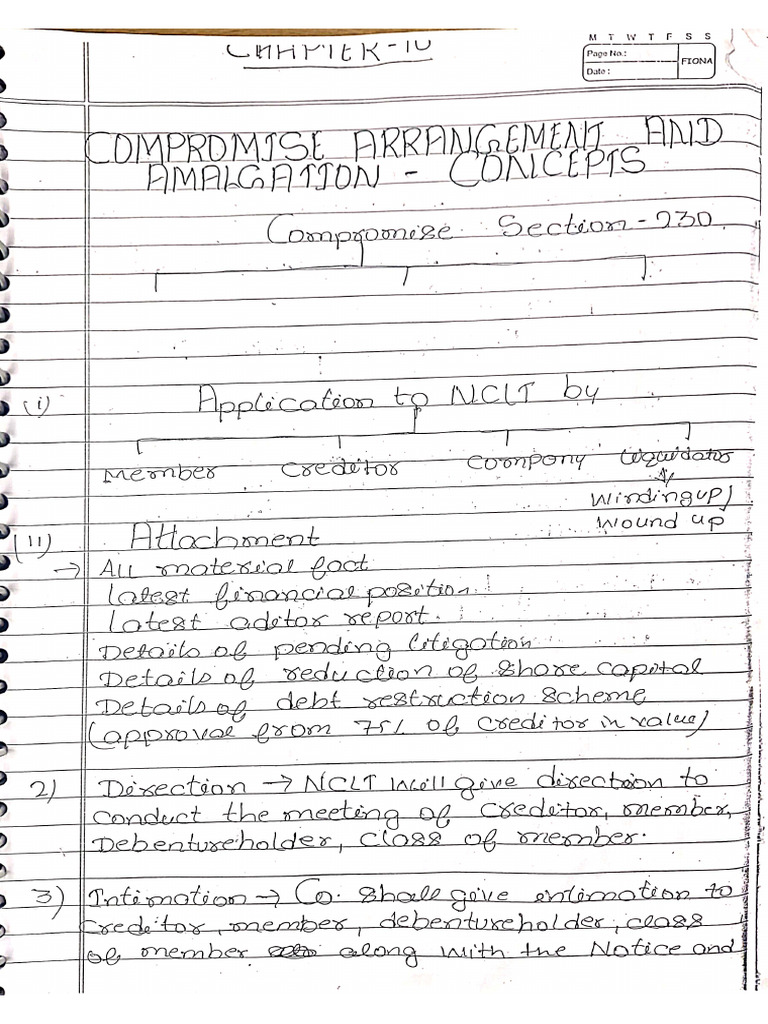 M T W T F S S
Page No.:
FIONA
Date:
CHAPTER-10
COMPROMISE ARRANGEMENT AND
AMALGATION - CONCEPTS
Compromise Section-230
(i) Application to NCLT by
Member Creditor Company Liquidator
Windingup/
Wound up
(11) Attachment
→ All material fact
latest financial position
latest aditor report.
Details of pending litigation
Details of reduction of share capital
Details of debt restruction scheme
(approval from 75% of creditor in value)
2) Direction → NCLT will give direction to
conduct the meeting of creditor, member,
Debentureholder, class of member.
3) Intimation → Co. shall give intimation to
creditor, member, debentureholder, class
of member along with the Notice and